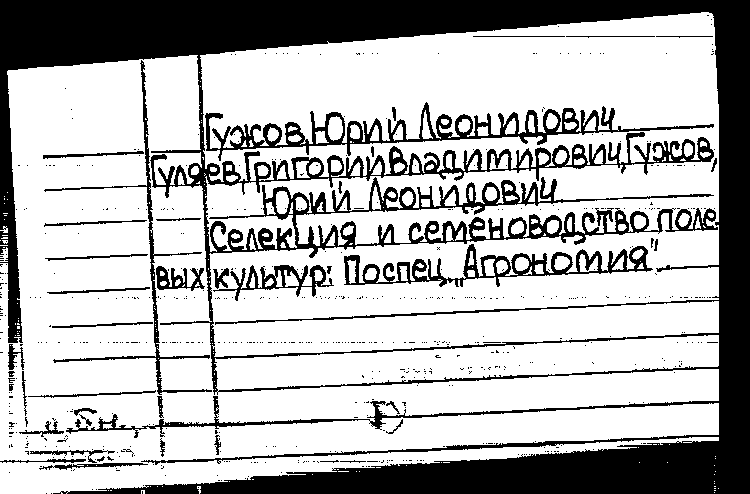 Гужов, Юрий Леонидович.
Гуляев, Григорий Владимирович, Гужов,
Юрий Леонидович.
Селекция и семеноводство поле
вых культур: По спец. „Агрономия".
ГУ